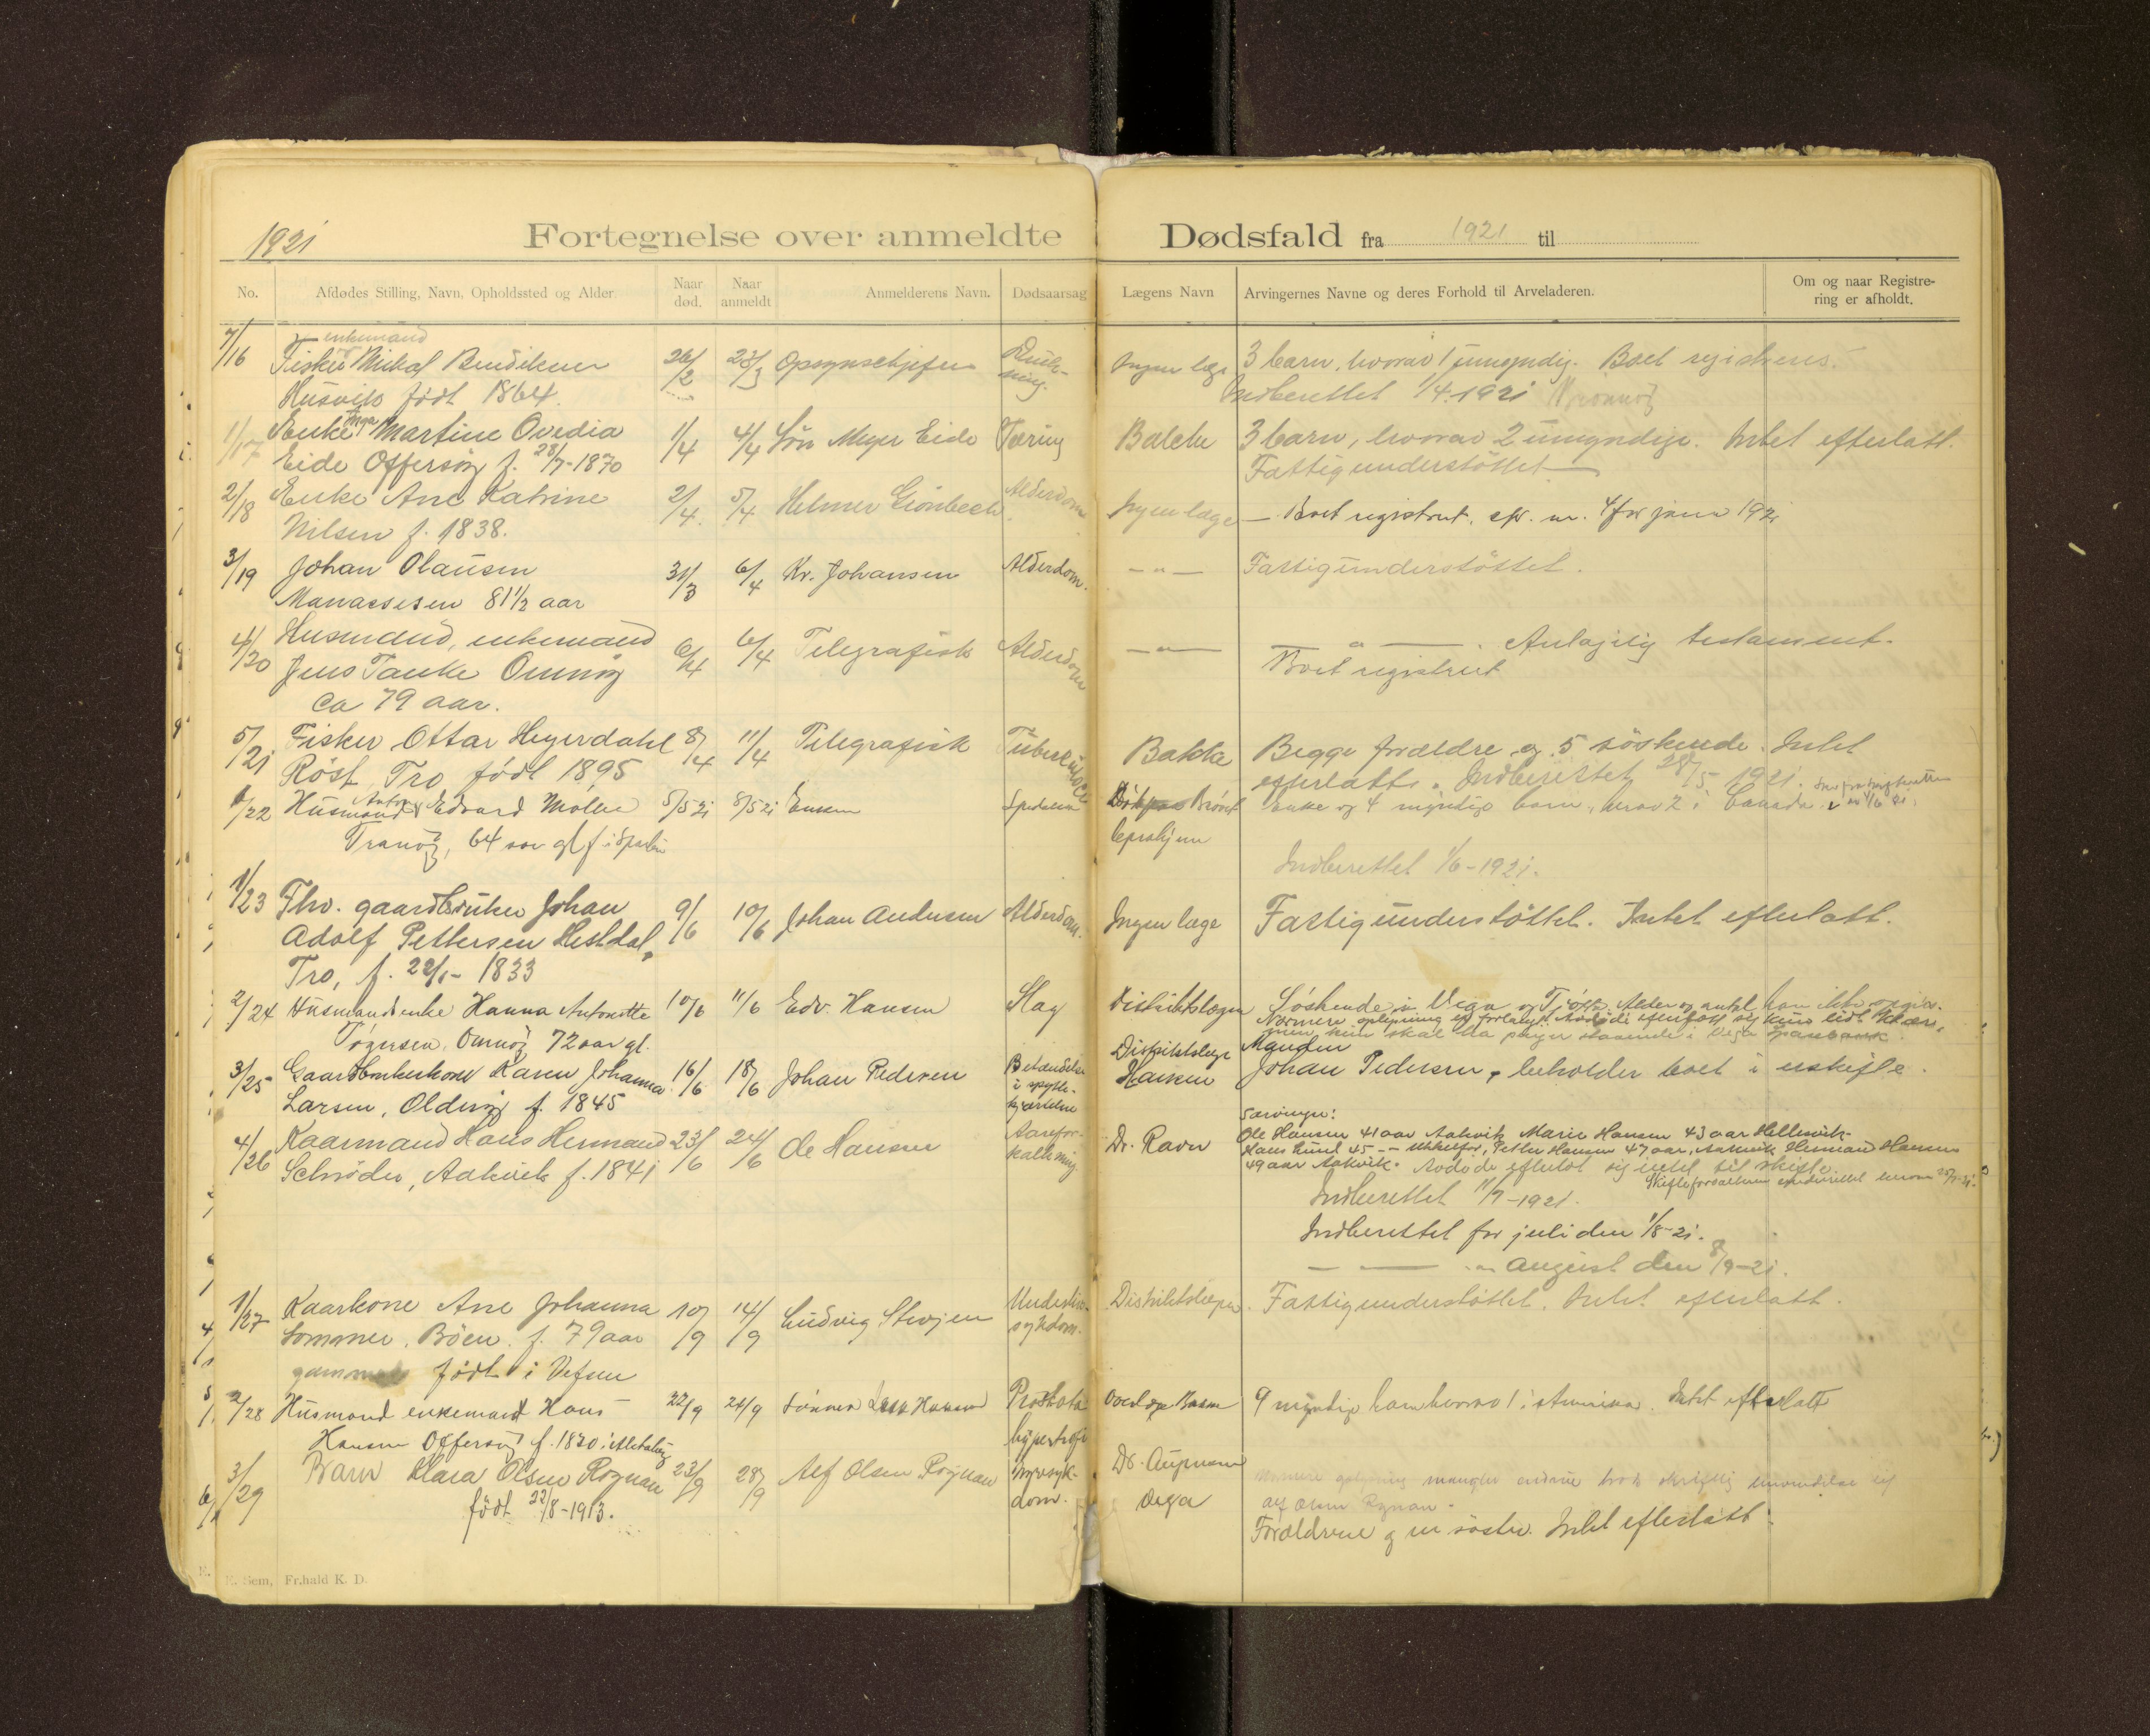 1921
Fortegnelse over anmeldte Dødsfald fra 1921 til
No. Afdødes Stilling, Navn, Opholdssted og Alder Naar død. Naar anmeldt Anmelderens Navn. Dødsaarsag Lægens Navn Arvingernes Navne og deres Forhold til Arveladeren. Om og naar Registrering er afholdt.
enkemand
7/16 Fisker Mikal Bendiksen 26/2 23/3 Opsynschefen Drukning. Ingen læge 3 barn, hvorav 1 umyndig. Boet registreres.
Husvik født 1864. Indberettet 1/4.1921
1/17 Enke Martine Ovedia 1/4 4/4 Søn Meyer Eide Tæring Bakke 3 barn, hvorav 2 umyndige. Intet efterlatt.
Eide Offersøy f. 28/7-1870 Fattigunderstøttet
2/18 Enke Ane Katrine 2/4. 5/4 Helmer Grønbech Alderdom Ingen læge — Boet registrert. nr. 4 for 1921
Nilsen f. 1838.
3/19 Johan Olausen 31/3 6/4 Kr. Johansen Alderdom. — " — Fattigunderstøttet.
Manassesen 81 1/2 aar
4/20 Husmand, enkemand 6/4 6/4 Telegrafisk Alderdom — " — — " — . Antagelig testament.
Jens Tanke Omnøy Boet registrert
ca 79 aar.
5/21 Fisker Ottar Heyerdahl 8/4 11/4 Telegrafisk Tuberculose Bakke Begge forældre og 5 søskende. Intet
Røst Tro født 1895 efterlatt. Indberettet 28/5 1921.
6/22 Husmand Anton Edvard Molbe 5/5 21 8/5 21 Enken Enke og 4 myndige barn, hvorav 2 i Canada.
Tranøy, 64 aar gl f i
Indberettet 1/6-1921.
1/23 Fhv. gaardbruker Johan 9/6 10/6 Johan Andersen Alderdom. Ingen læge Fattigunderstøttet. Intet efterlatt.
Adolf Pettersen Hestdal,
Tro, f. 22/1- 1833
2/24 Husmandsenke Hanna Antonette 10/6 11/6 Edv. Hansen Slag Distriktslægen Søskende i Vega og Tjøtta. Alder og antal kan ikke opgis.
Tørgersen, Omnøy 72 aar gl. Nærmere oplysning
3/25 Gaardbrukerkone Karen Johanna 16/6 18/6 Johan Pedersen Betændelse i spytkjertelen Distriktslæge Hansen Manden
Larsen, Oldersøy f. 1845 Johan Pedersen, beholder boet i uskifte.
4/26 Kaarmand Hans Hermand 23/6 24/6 Ole Hansen Aareforkalkning Dr. Ravn Særvinger:
Schrøder, Aakvik f. 1841 Ole Hansen 41 aar Aakvik Marie Hansen 43 aar Hellesvik
Petter Hansen 47 aar, Aakvik Herman Hansen
49 aar Aakvik. Avdøde efterlot sig intet til skifte.
Indberettet 11/7-1921.
Indberettet for juli den 1/8-21.
— — " — august den 8/9-21.
1/27 Kaarkone Ane Johanna 10/9 14/9 Ludvig Underlivssykdom. Distriktslægen. Fattigunderstøttet. Intet efterlatt.
Sommer, Bøen. f. 79 aar
gammel født i Vefsn
2/28 Husmand enkemand Hans 22/9 24/9 Sønnen Hansen Prostata hypertrofi 9 myndige barn hvorav 1 i Amerika. Intet efterlatt
Hansen Offersøy f. 1830 i
3/29 Barn Klara Olsen Rognan 23/9 28/9 Alf Olsen Rognan sykdom. Dr. Vega nærmere oplysning mangler
født 22/8-1913. Alf Olsen Rognan.
Forældrene og en søster. Intet efterlatt.
E. Sem, Fr.hald K. D.